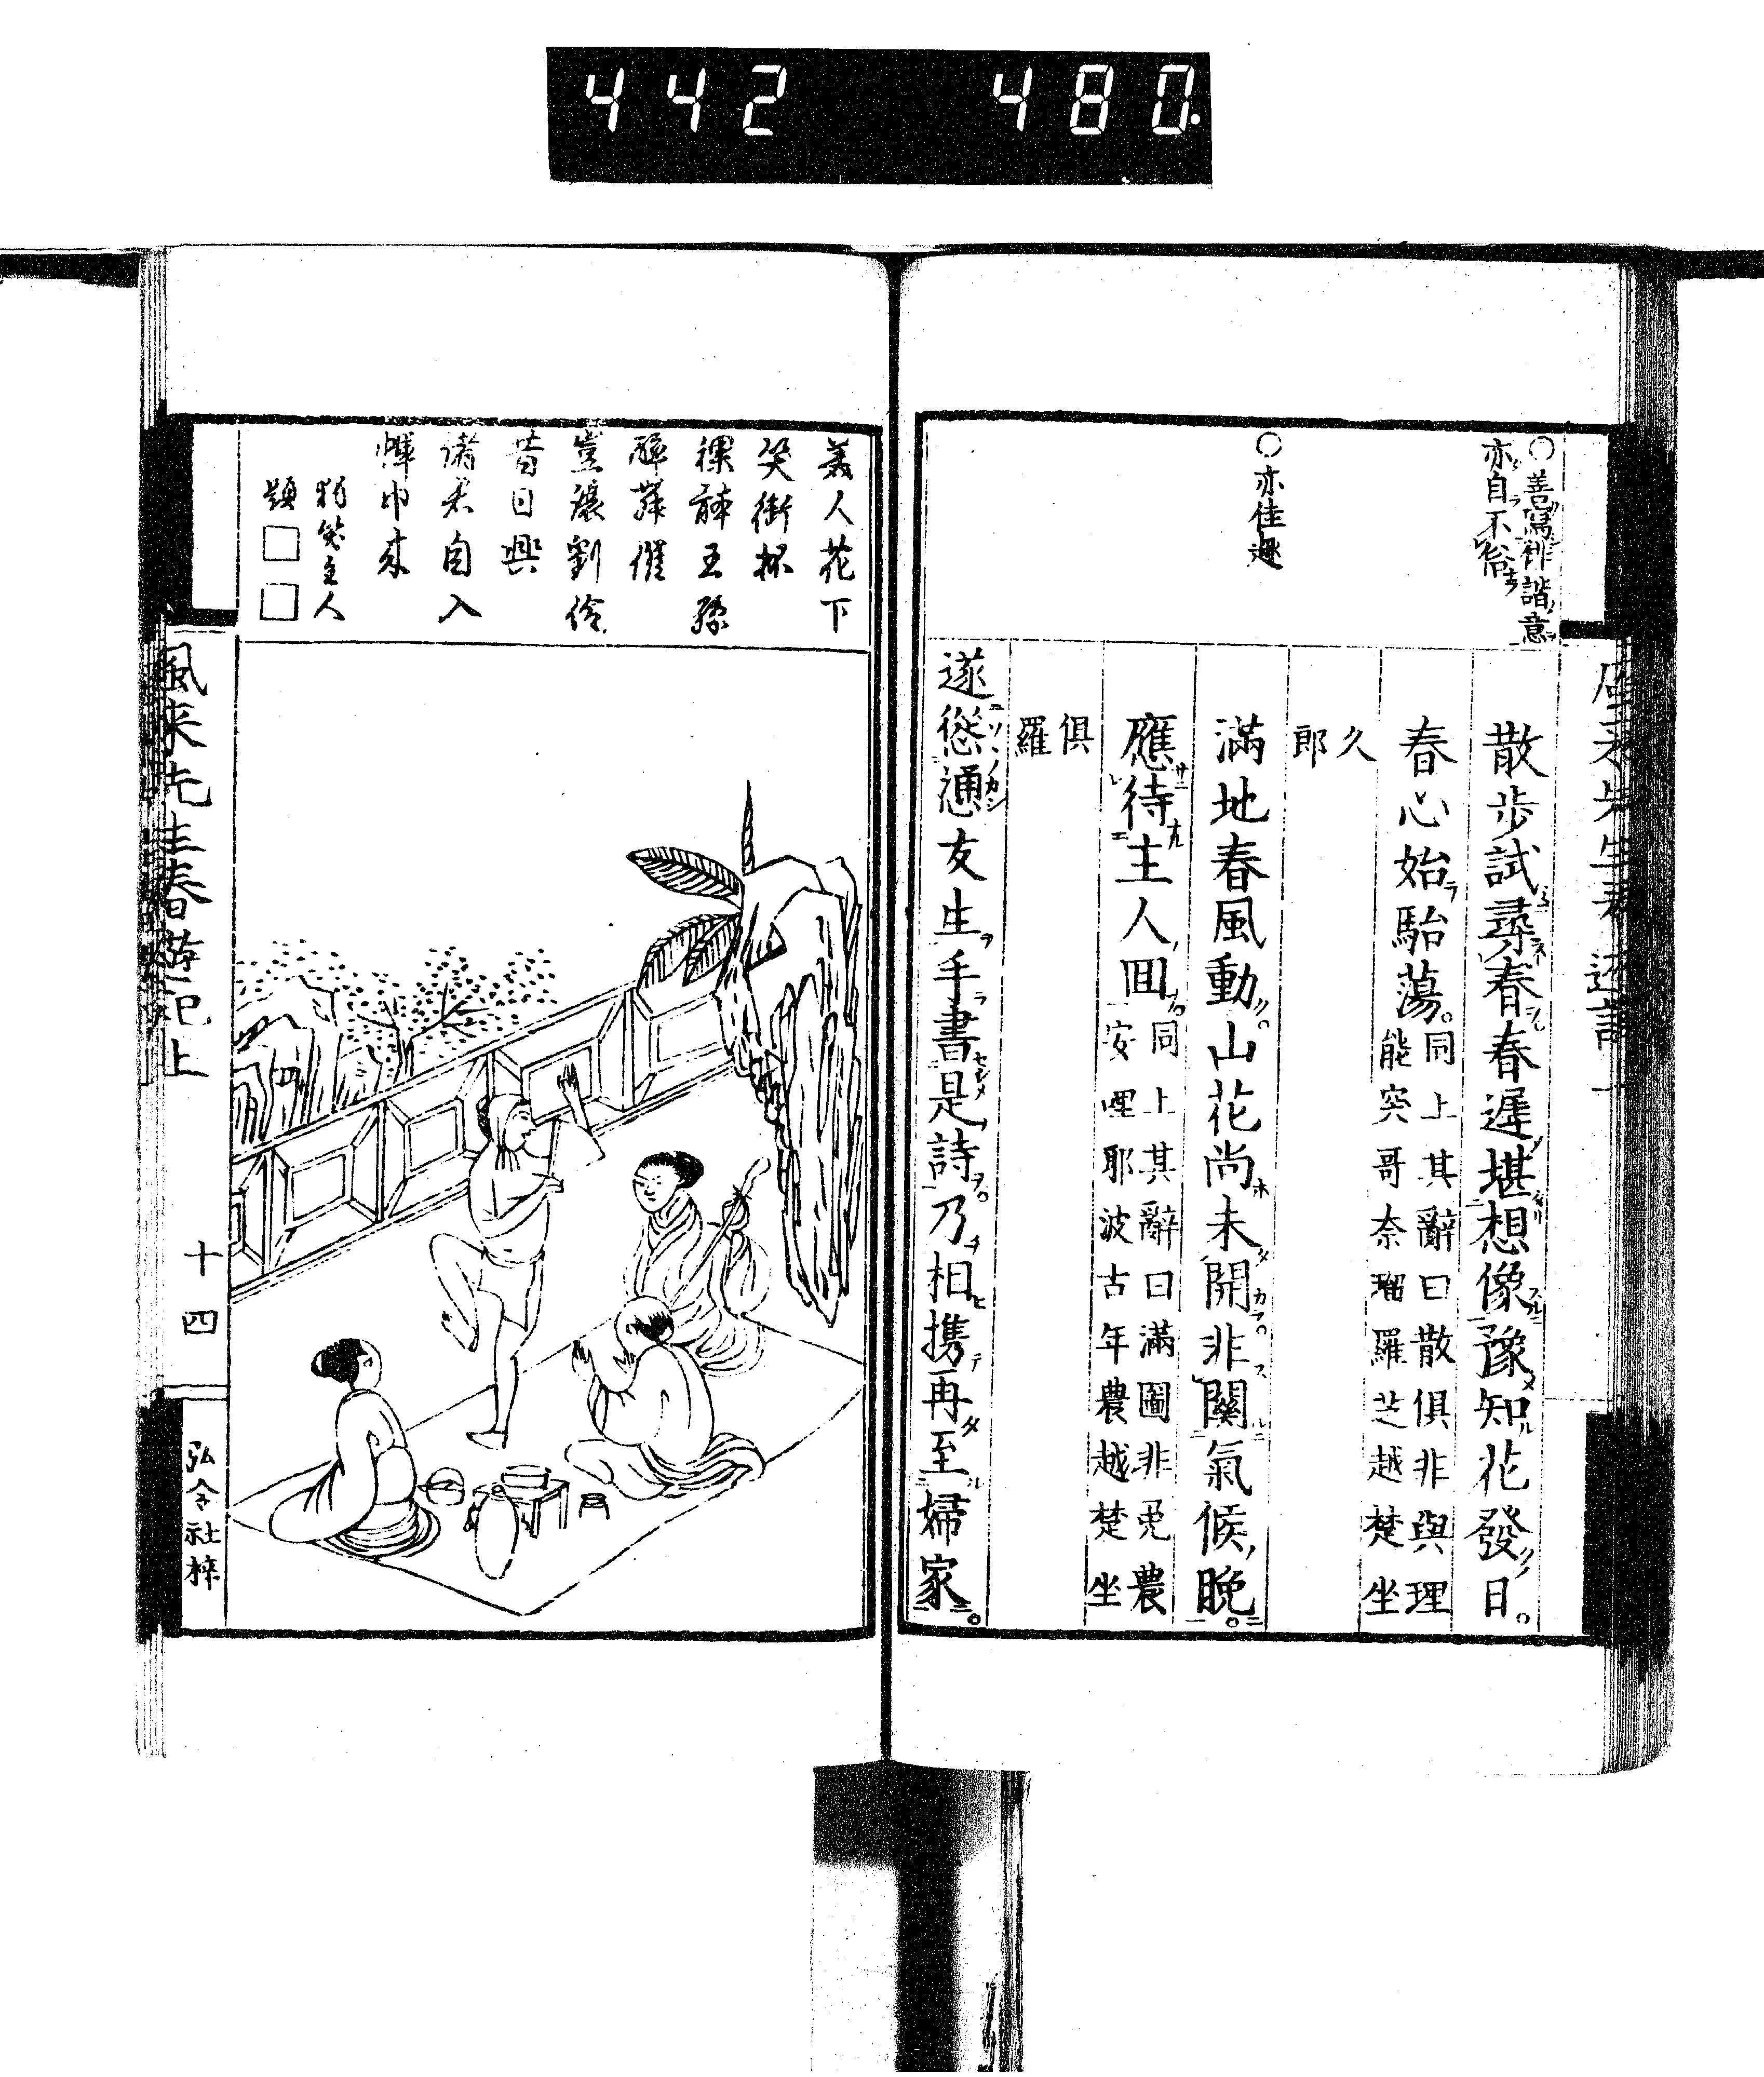 442 480.
○善寫俳諧意
亦自不俗
○亦佳趣
散步試尋春春遲堪想像豫知花發日。
春心始駘蕩。同上其辭曰散俱非與理
能突哥奈瑠羅芝越楚坐
久
郎
滿地春風動。山花尚未開。非關氣候晚。
應待主人回。同上其辭曰滿圖非兎農
安哩耶波古年農越楚坐
俱
羅
遂慫慂友生手書是詩。乃相携再至婦家。
美人花下
笑銜杯
裸體王孫
醉舞催
豈讓劉伶
昔日興
諸君自入
褌中來
主人
題□□
風来先生春遊記上
十四
弘令社梓